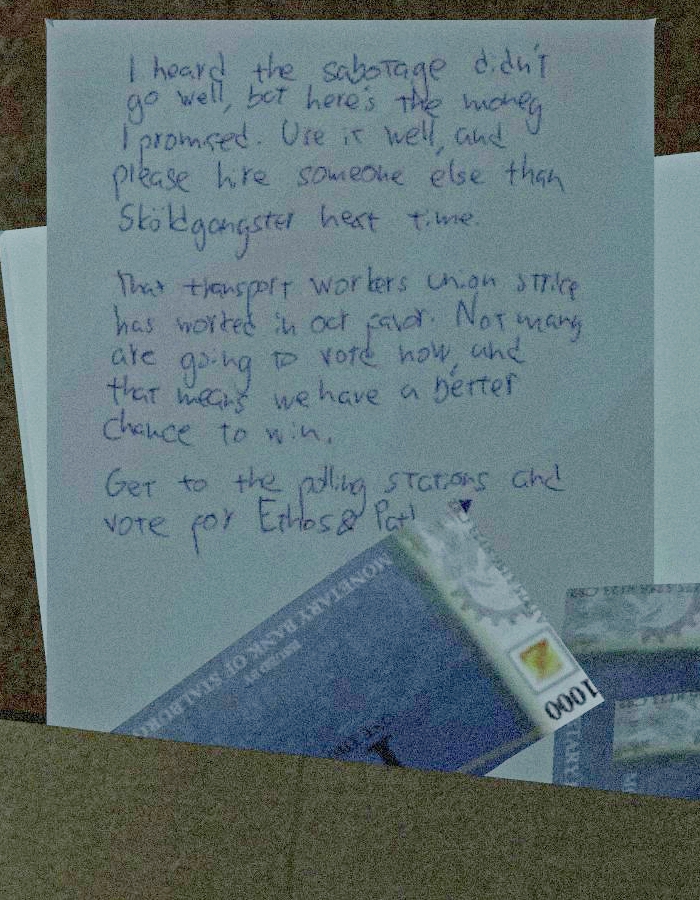 I heard the sabotage didn't
go well, but here's the money
I promised. Use it well, and
please hire someone else than
Sköldgangster next time.
That transport workers union strike
has worked in our favor. Not many
are going to vote now, and
that means we have a better
chance to win.
Get to the polling stations and
vote for Ethos&
MONETARY BANK OF STALBURG
1000